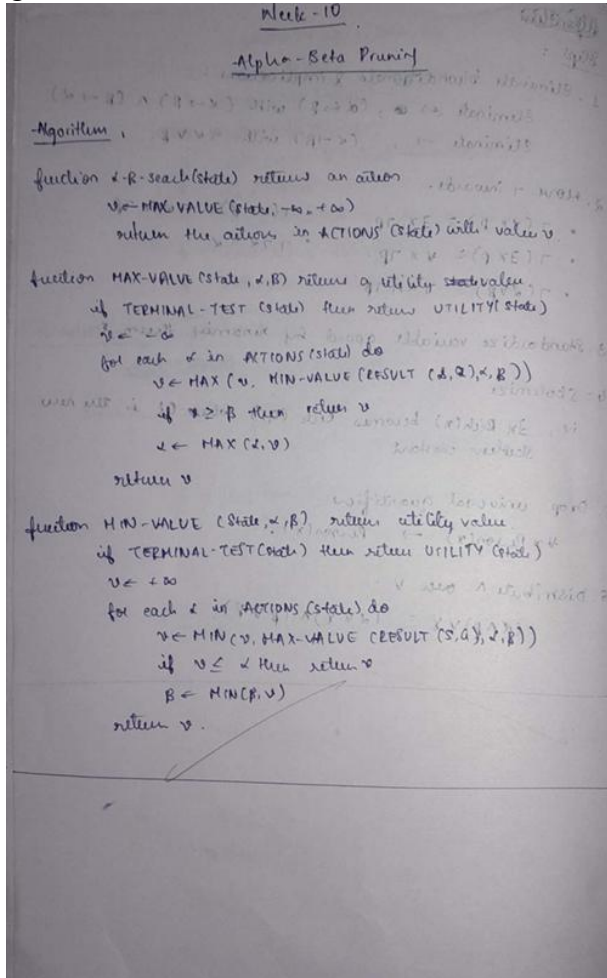 Week - 10
Alpha - Beta Pruning
Algorithm
function α-β-seach(state) returns an action
v ← MAX VALUE (state, -∞, +∞)
return the actions in ACTIONS (state) with value v
function MAX-VALUE (state, α, β) returns a utility value
if TERMINAL-TEST (state) then return UTILITY (state)
v ← -∞
for each α in ACTIONS (state) do
v ← MAX (v, MIN-VALUE (RESULT (α, β))
if v ≥ β then return v
α ← MAX (α, v)
return v
function MIN-VALUE (State, α, β) returns utility value
if TERMINAL-TEST (state) then return UTILITY (state)
v ← +∞
for each α in ACTIONS (state) do
v ← MIN (v, MAX-VALUE (RESULT (S, a), α, β))
if v ≤ α then return v
β ← MIN (β, v)
return v.